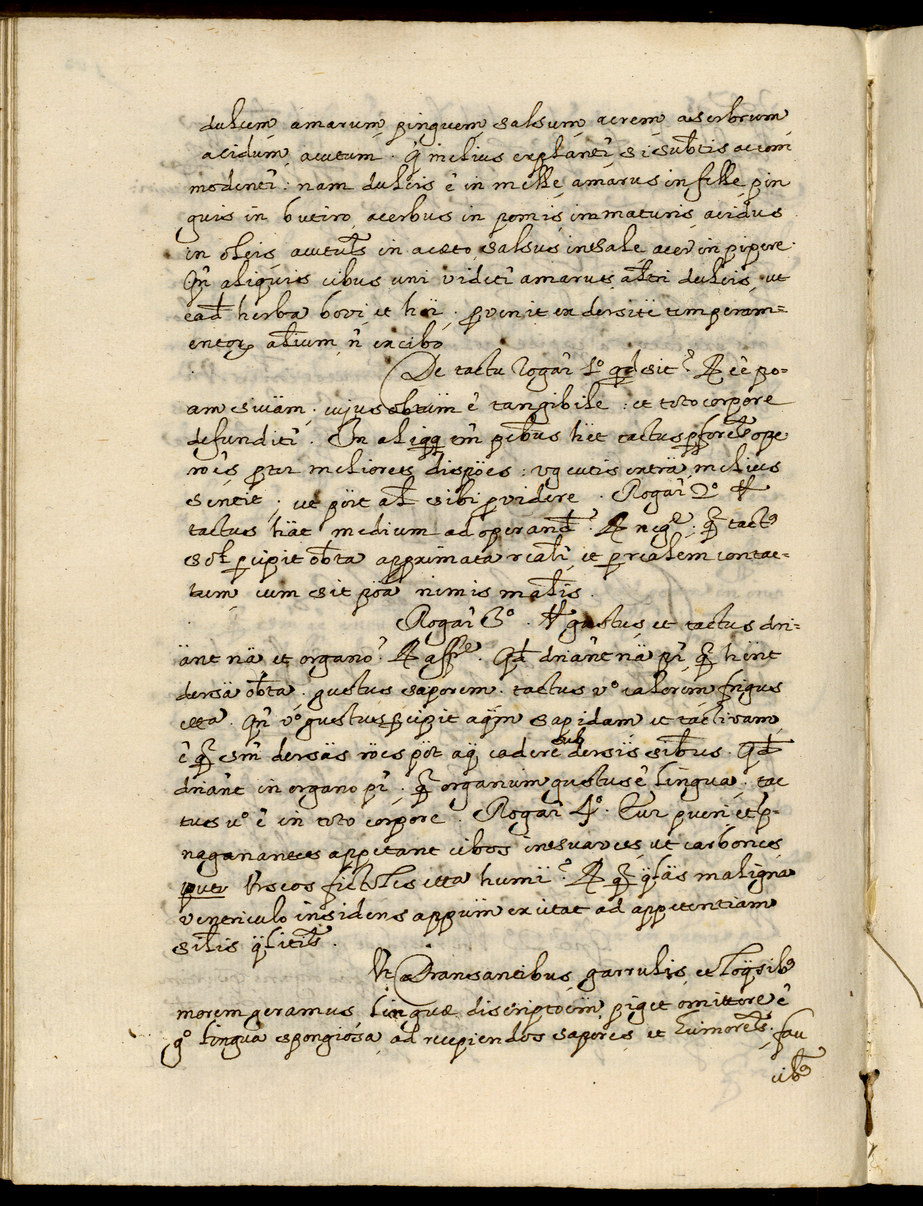 dulcem amarum pinguem salsum acrem aserbrum
acidum acutum. q̃ melius explantr̃ si subtis accom
modentr̃: nam dulcis ẽ in melle, amarus in felle pin
guis in butiro, acerbus in pomis immaturis, acidus
in oleis acutus in aceto salsus in sale acer in pipere.
Qñ aliquis cibus uni videtr̃ amarus altri dulcis, ut
ead herba bovi, et hõi, provenit ex dersitë temperam=
entor, alium, ñ ex cibo
De tactu Rogar̃ 1º qd sit? R ẽ po=
am siuäm, cujus obtum ẽ tangibile: et toto corpore
defunditr̃. In aliqq tm̃ ptbus hẽt tactus pfores ope
roẽs propter meliores dispoẽs: vg cutis enträ melius
sentit, ut põit al sibi providere. Rogar̃ 2º
tactus häc medium ad operand? R neg: q̃ tact
sol pcipit obta approximata reali, et p realem contac=
tum, cum sit põa nimis malis.
Rogar̃ 3º. gustus et tactus dri=
änt nä et organo? R affr. Qd driänt nä pr̃ q̃ hẽnt
dersä obta. gustus saporem. tactus vº calorem frigus
etta. Qñ vº gustus pcipit aqm sapidam et tactivam
ẽ q̃ esm̃ dersäs rões põt aq cadere sub dersiis sibus. Qd
driänt in organo pr̃. q̃ organum gustus ẽ lingua, tac
tus vº ẽ in toto corpore. Rogar̃ 4º. Cur pueri, et p-
naganantes appetant cibos insuaves, ut carbones
puer Vrseos fictoles etta humi? R q̃ qläs maligna
ventriculo insidens appüm excitat ad appetentiam
silis qlitis.
Ut Dransantibus garrulis et loqsib
morem geramus linguæ discriptoem piget omittere ẽ
gº lingua spongiosa ad recipiendos sapores et humores. fau
cib